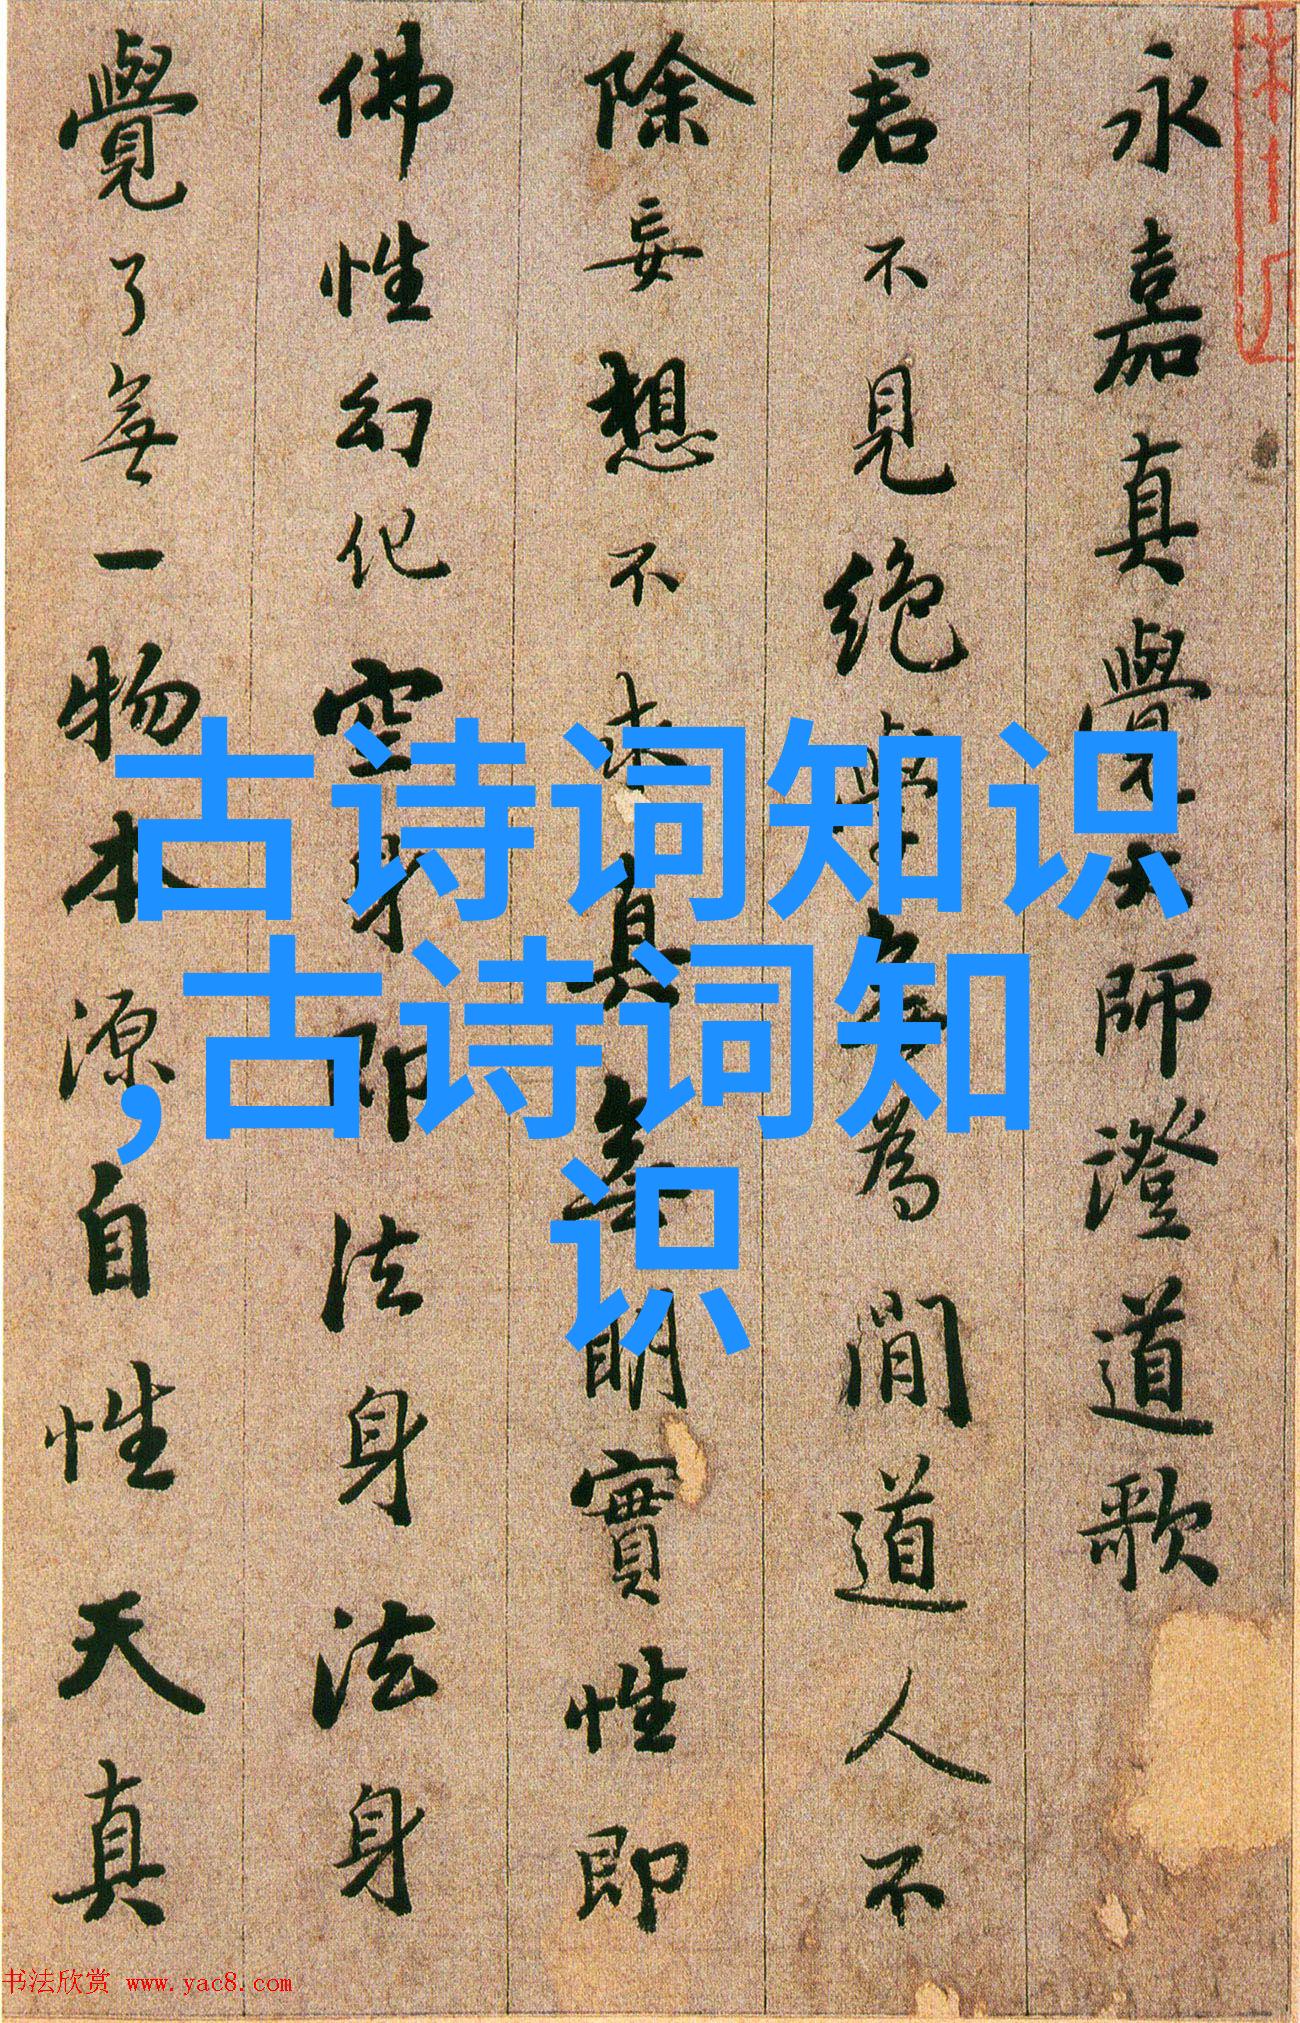 永嘉真覺大師證道歌
君不見絕學無為閒道人不
除妄想不求真無明實性即
佛性幻化空身即法身法身
覺了無一物本源自性天真
古诗词知识
,古诗词知
识
书法欣赏 www.yac8.com